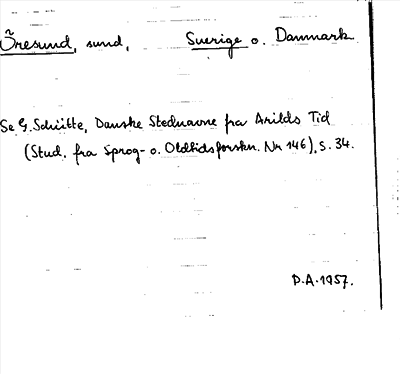 Öresund, sund, Sverige o. Danmark
Se G. Schütte, Danske Stednavne fra Arilds Tid
(Stud. fra Sprog- o. Oldtidsforskn. Nr 146), s. 34.
D.A. 1957.